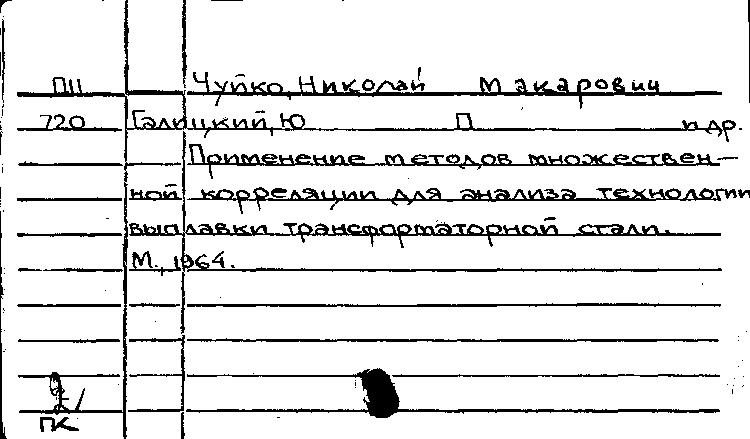 П11 Чуйко, Николай Макарович
720 Галицкий, Ю П и др.
Применение методов множествен-
ной корреляции для анализа технологии
выплавки трансформаторной стали.
М., 1964.
2/
ПК